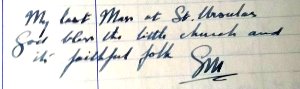 My last Mass at St. Ursulas
God bless the little church and
its faithful folk